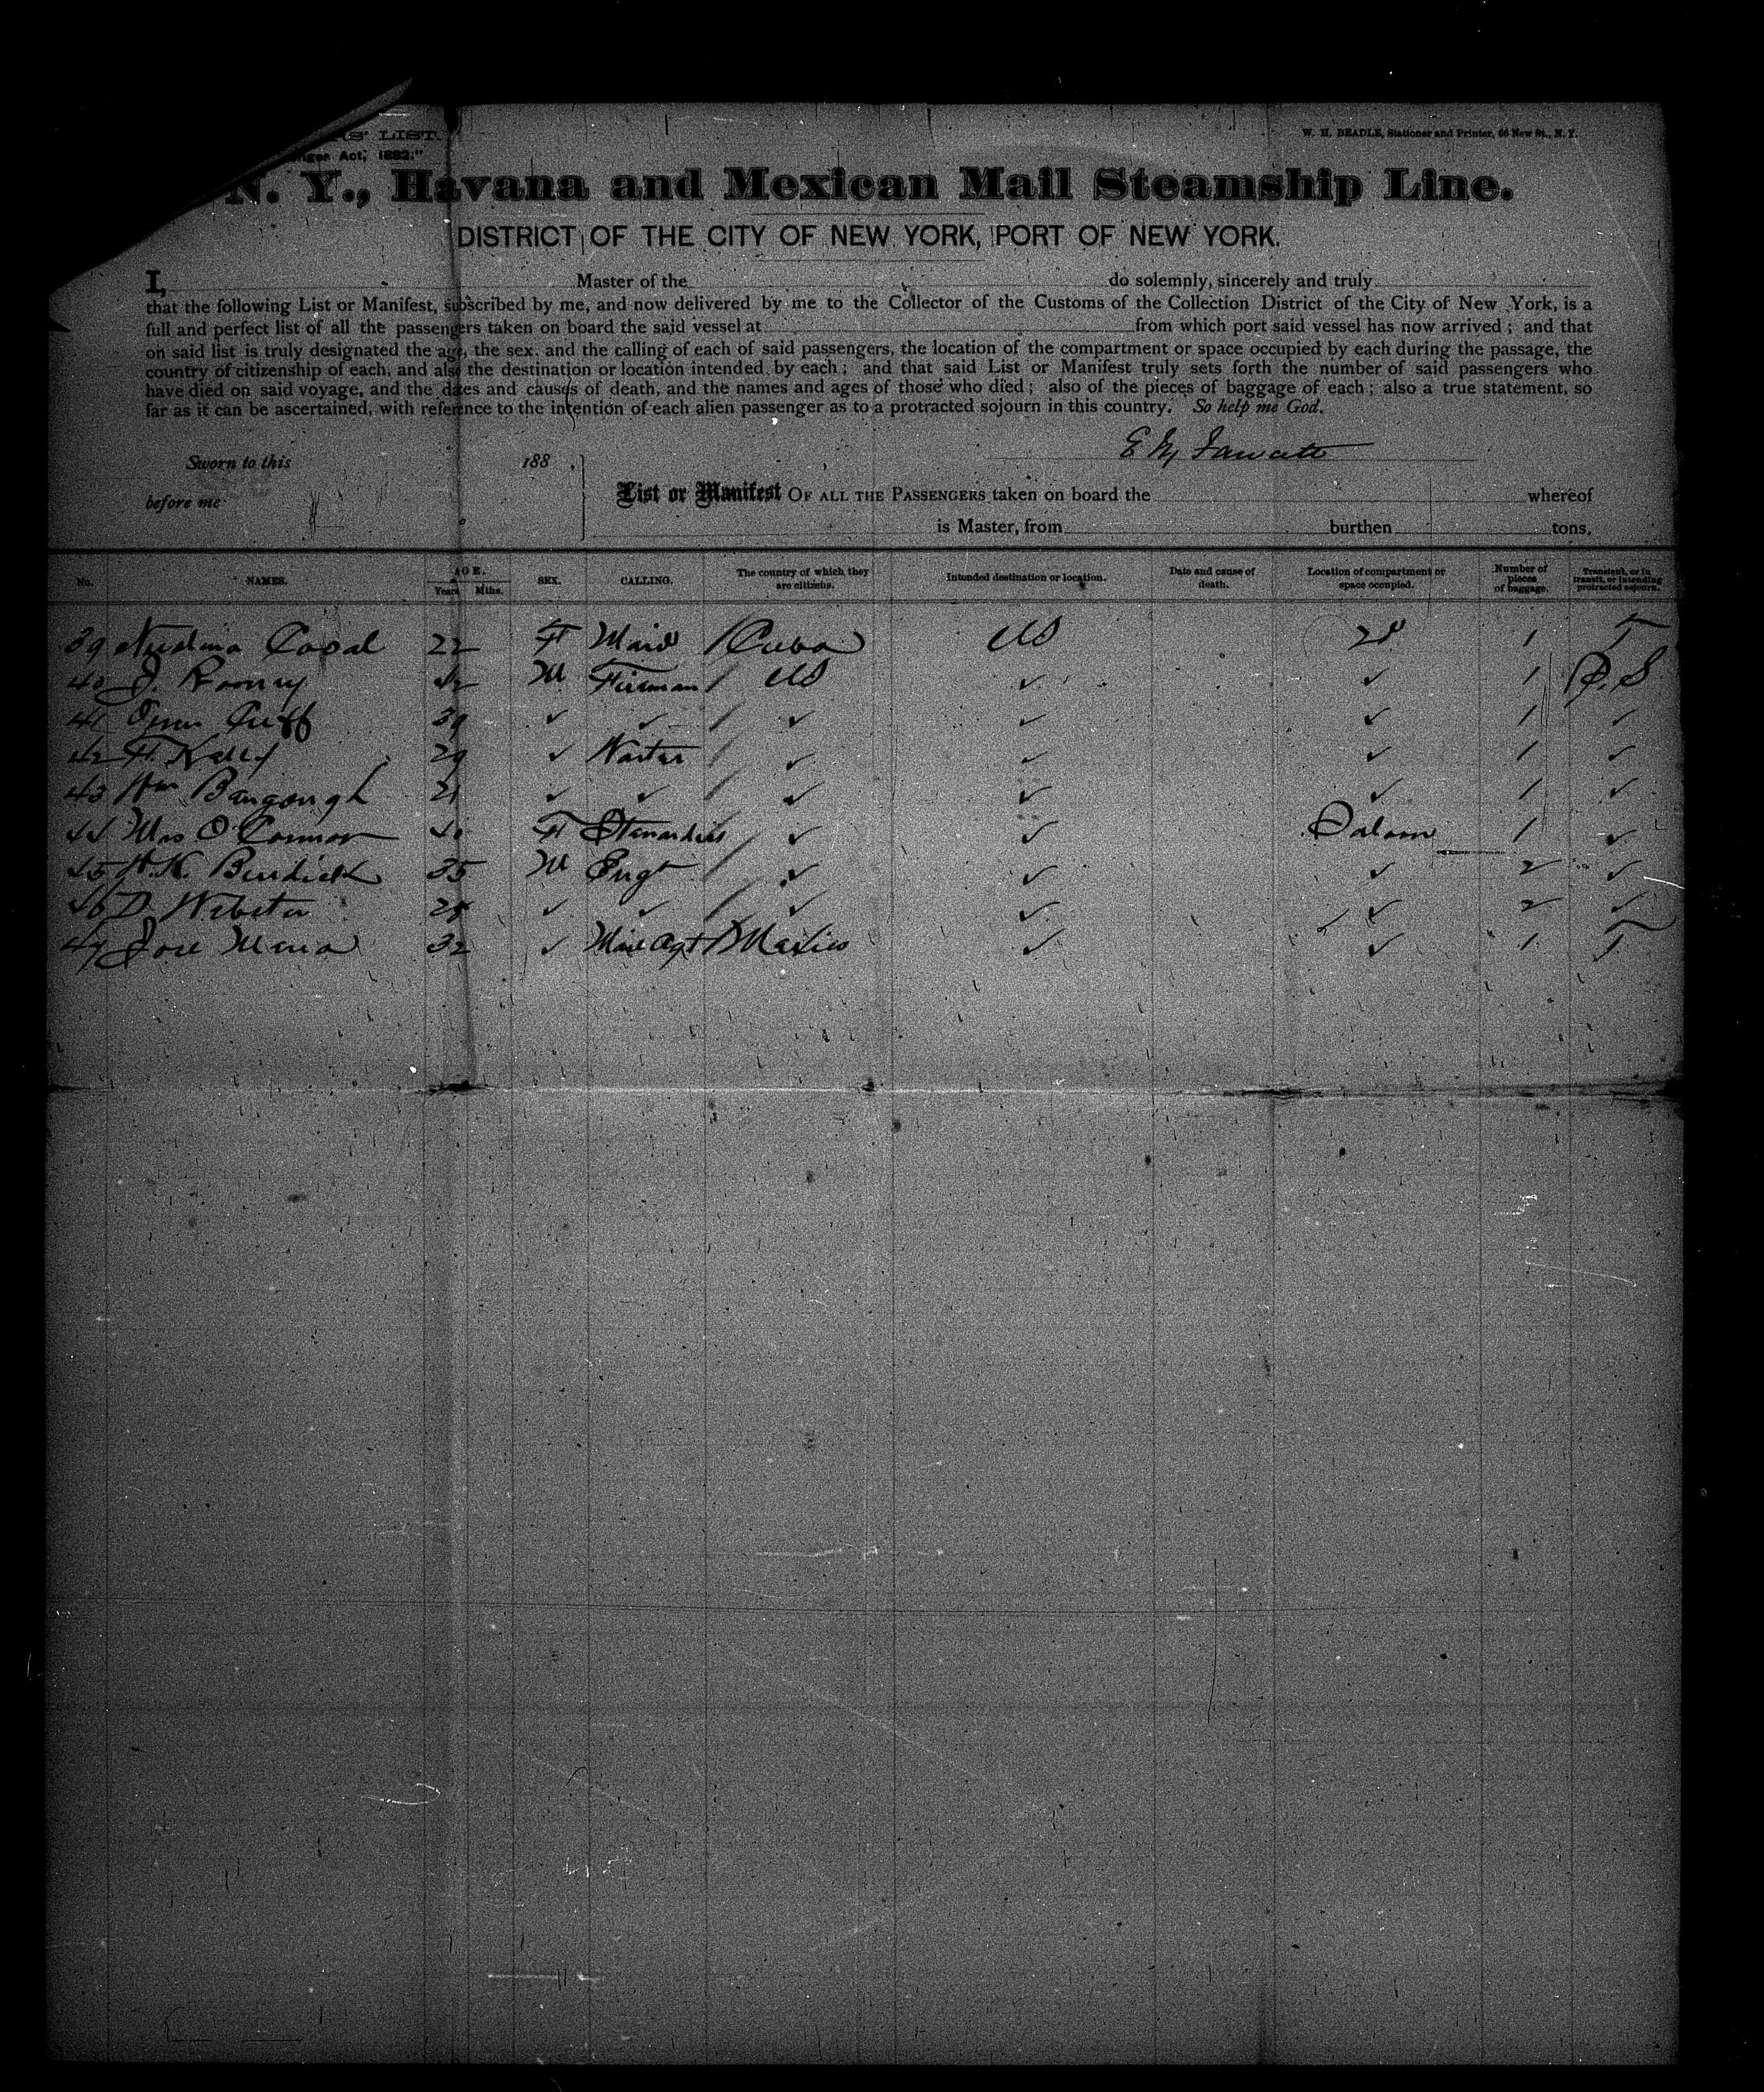 LIST.
Act, 1882."
W. H. BEADLE, Stationer and Printer, 66 New St., N. Y.
N. Y., Havana and Mexican Mail Steamship Line.
DISTRICT OF THE CITY OF NEW YORK, PORT OF NEW YORK.
I, Master of the do solemnly, sincerely and truly
that the following List or Manifest, subscribed by me, and now delivered by me to the Collector of the Customs of the Collection District of the City of New York, is a
full and perfect list of all the passengers taken on board the said vessel at from which port said vessel has now arrived; and that
on said list is truly designated the age, the sex. and the calling of each of said passengers, the location of the compartment or space occupied by each during the passage, the
country of citizenship of each, and also the destination or location intended by each; and that said List or Manifest truly sets forth the number of said passengers who
have died on said voyage, and the dates and causes of death, and the names and ages of those who died; also of the pieces of baggage of each; also a true statement, so
far as it can be ascertained, with reference to the intention of each alien passenger as to a protracted sojourn in this country. So help me God.
Sworn to this 188
before me
List or Manifest OF ALL THE PASSENGERS taken on board the whereof
is Master, from burthen tons.
No. NAMES. AGE. Years Mths. SEX. CALLING. The country of which they are citizens. Intended destination or location. Date and cause of death. Location of compartment or space occupied. Number of pieces of baggage. Transient, or in transit, or intending protracted sojourn.
39 Casal 22 F Maid / Cuba US 1 T
40 J. Rooney 42 M Fireman / US ✓ ✓ 1 P.S
41 Cuff 39 ✓ ✓ / ✓ ✓ ✓ 1 ✓
42 F. Kelly 29 ✓ / ✓ ✓ ✓ 1 ✓
43 Wm 21 ✓ ✓ / ✓ ✓ ✓ 1 ✓
44 Mrs O'Connor F Stewardess / ✓ ✓ Saloon 1 ✓
45 Burdick 35 M Engr / ✓ ✓ ✓ 2 ✓
46 D. Webster 28 ✓ ✓ / ✓ ✓ ✓ 2 ✓
47 Jose 32 ✓ Mail Agt / Mexico ✓ ✓ 1 T